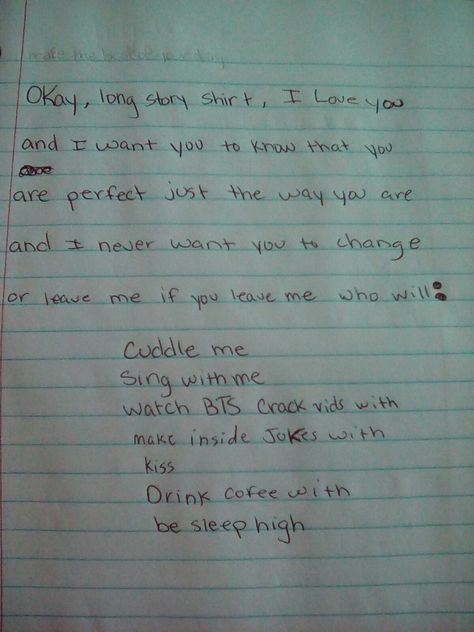 make me
Okay, long story shirt, I Love you
and I want you to know that you
are perfect just the way you are
and I never want you to change
or leave me if you leave me who will:
Cuddle me
Sing with me
watch BTS Crack vids with
make inside Jokes with
kiss
Drink cofee with
be sleep high